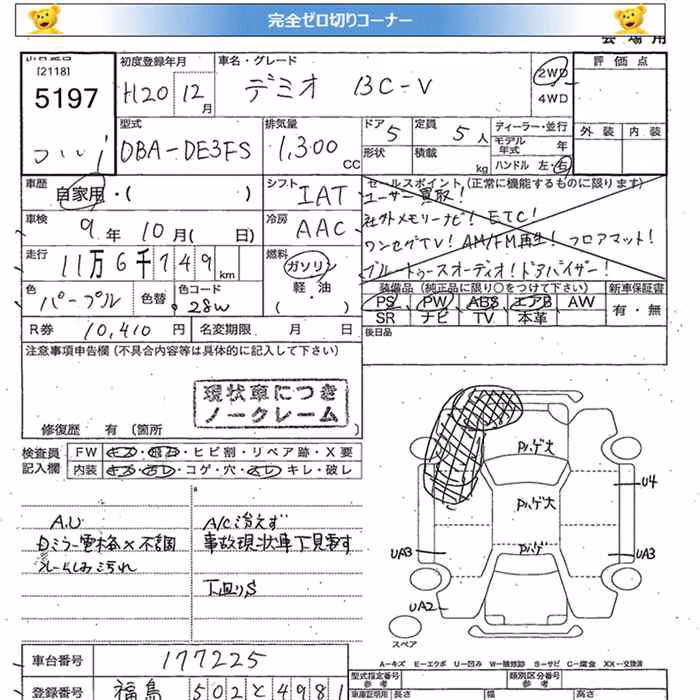 完全ゼロ切りコーナー
会 場 用
[2118]
5197
初度登録年月
H20 12月
車名・グレード
デミオ 13C-V
2WD
4WD
評 価 点
外 装 内 装
型式
DBA-DE3FS
排気量
1,300 CC
ドア 5
形状
定員 5人
積載 kg
ディーラー・並行
モデル年式 年
ハンドル 左・右
車歴
自家用・( )
シフト IAT
車検
9年 10月( 日)
冷房 AAC
走行
11万6千749km
燃料
ガソリン
軽・油
( )
色
パープル
色替
色コード
28W
セールスポイント(正常に機能するものに限ります)
ユーザー買取!
社外メモリーナビ! ETC!
ワンセグTV! AM/FM再生! フロアマット!
ブルートゥースオーディオ! ドアバイザー!
装備品(純正品に限り○をつけて下さい)
新車保証書
PS PW ABS エアB AW
SR ナビ TV 本革
有・無
R券 10,410円
名変期限 月 日
後日品
注意事項申告欄(不具合内容等は具体的に記入して下さい)
現状車につき
ノークレーム
修復歴 有(箇所 )
検査員
記入欄
FW キズ・飛石・ヒビ割・リペア跡・X要
内装 キズ・汚レ・コゲ・穴・スレ・キレ・破レ
A.U
Dミラー電格×不調
A/C冷えず
事故現状車下見要す
下回りS
Pハゲ大
Pハゲ大
Pハゲ
U4
UA3
UA3
UA2
スペア
A-キズ E-エクボ U-凹み W-補修跡 S-サビ C-腐食 XX-交換済
車台番号 177225
登録番号 福島 502と4981
型式指定番号
参考
類別区分番号
参考
車庫証明用 長さ 幅 高さ